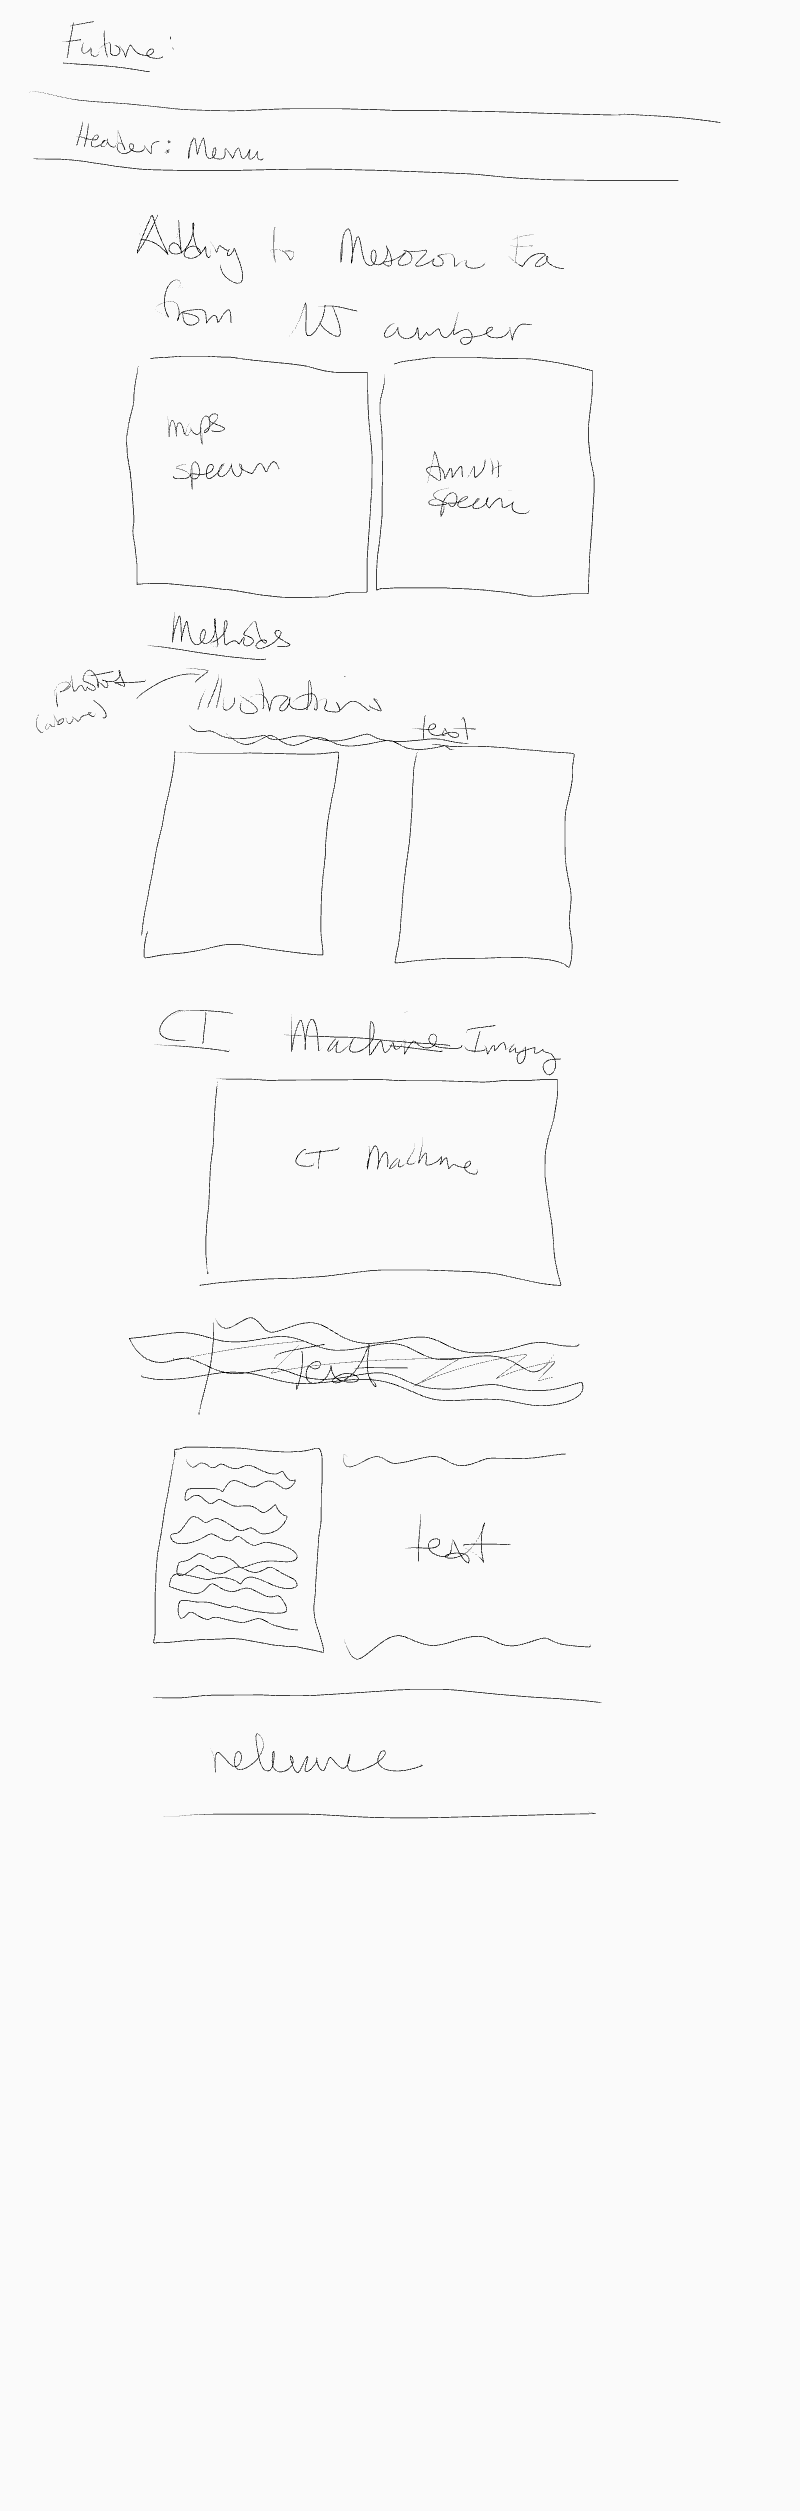 Future:
Header: Menu
Adding to Mesozoic Era
from NJ amber
specimen
AMNH
specimen
Methods
photos
(above)
illustrations
text
CT Machine Imaging
CT Machine
Text
text
relevance